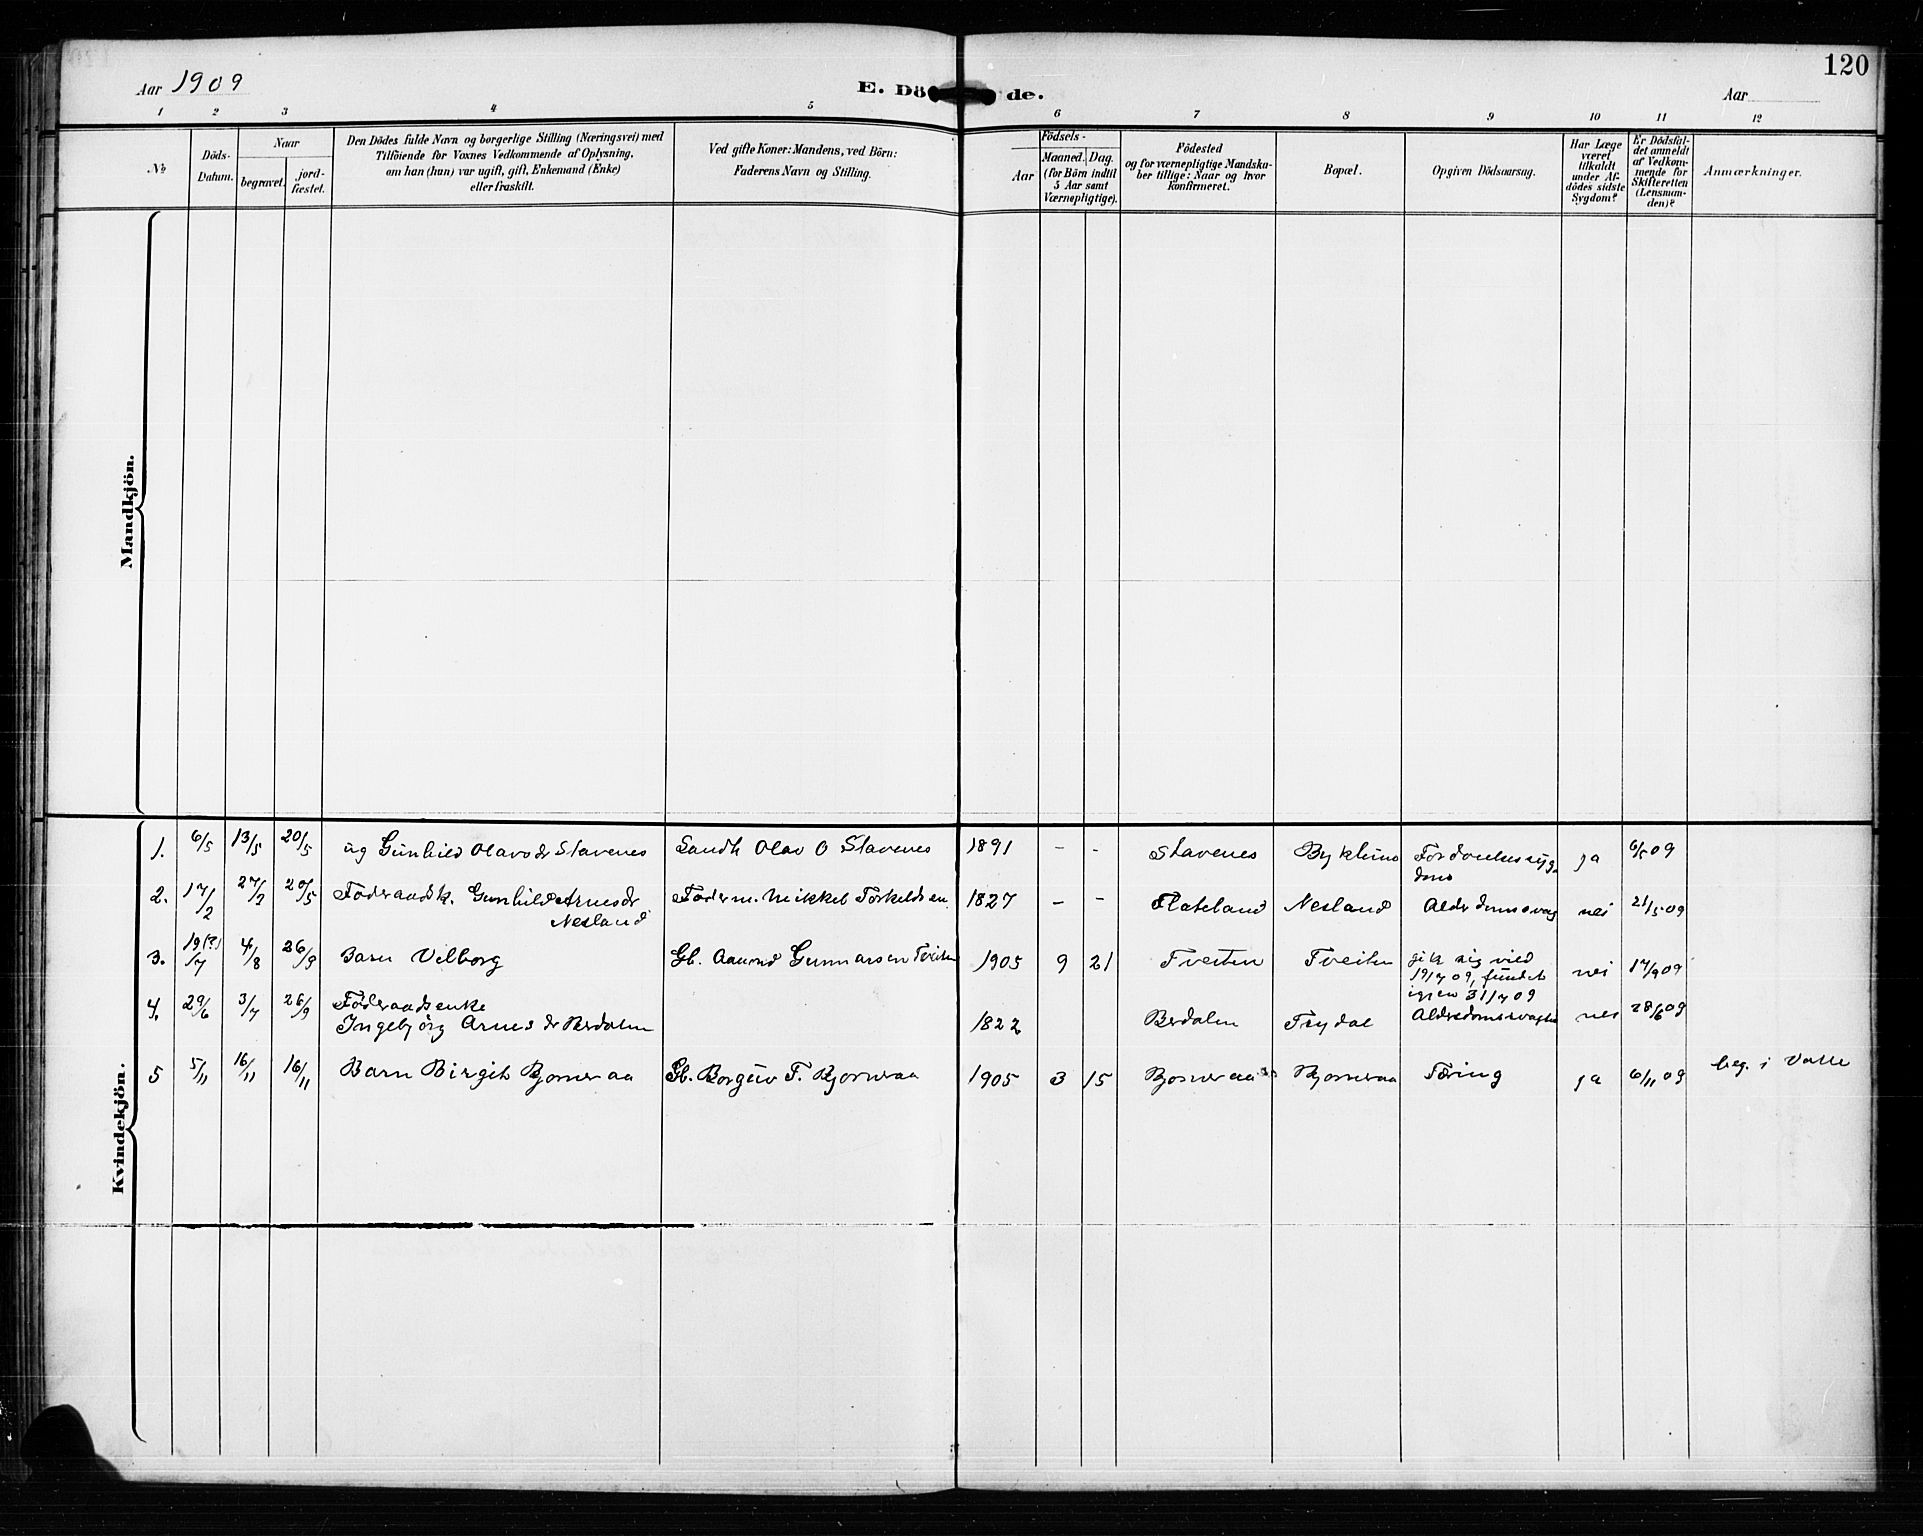 120
Aar 1909
E. Dö de.
Aar
1 2 3 4 5 6 7 8 9 10 11 12
No
Döds-
Datum.
Naar
begravet.
jord-
fæstet.
Den Dödes fulde Navn og borgerlige Stilling (Næringsvei) med
Tilföiende for Voxnes Vedkommende af Oplysning,
om han (hun) var ugift, gift, Enkemand (Enke)
eller fraskilt.
Ved gifte Koner: Mandens, ved Börn:
Faderens Navn og Stilling.
Födsels-
Aar
Maaned. Dag.
(for Börn indtil
5 Aar samt
Værnepligtige).
Födested
og for værnepligtige Mandska-
ber tillige: Naar og hvor
konfirmeret.
Bopæl.
Opgiven Dödsaarsag.
Har Læge
været
tilkaldt
under Af-
dödes sidste
Sygdom?
Er Dödsfal-
det anmeldt
af Vedkom-
mende for
Skifteretten
(Lensman-
den)?
Anmærkninger.
Mandkjön.
Kvindekjön.
1. 6/5 13/5 20/5 ug Gunhild Olavsdr Stavenes Olav O Stavenes 1891 - - Stavenes ja 6/5 09
2. 17/2 27/2 20/5 Föderaadsk. Gunhild Arnesdr
Nesland
Föderm. Mikkel Torkeldsen 1827 - - Flateland Nesland nei 21/5 09
3. 19(?)/7 4/8 26/9 Barn Vilborg Gb. Aamund Gunnarsen Tveiten 1905 9 21 Tveiten Tveiten gik sig vild
19/7 09, fundet
igjen 31/7 09
nei 17/9 09
4. 29/6 3/7 26/9 Föderaadsenke
Ingebjörg Arnesdr Berdalen 1822 Berdalen Trydal nei 28/6 09
5 5/11 16/11 16/11 Barn Birgit Bjorneraa Gb. Borguv T. Bjorneraa 1905 3 15 Bjorneraa Bjorneraa Tæring ja 6/11 09 beg. i Valle